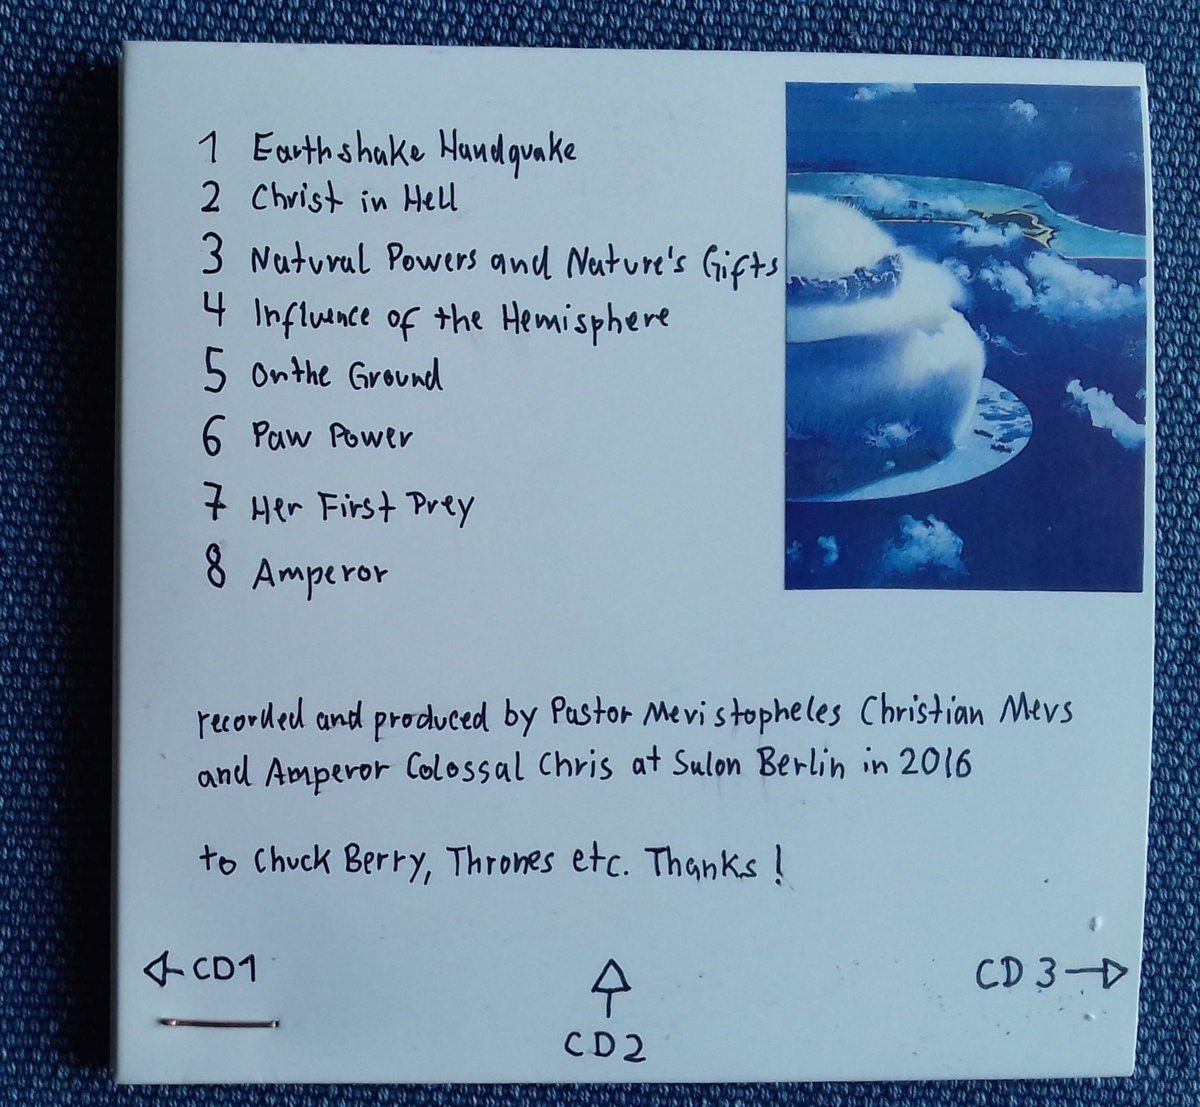 1 Earthshake Handquake
2 Christ in Hell
3 Natural Powers and Nature's Gifts
4 Influence of the Hemisphere
5 On the Ground
6 Paw Power
7 Her First Prey
8 Amperor
recorded and produced by Pastor Mevistopheles Christian Mevs
and Amperor Colossal Chris at Sulon Berlin in 2016
to Chuck Berry, Thrones etc. Thanks!
CD1
CD2
CD3